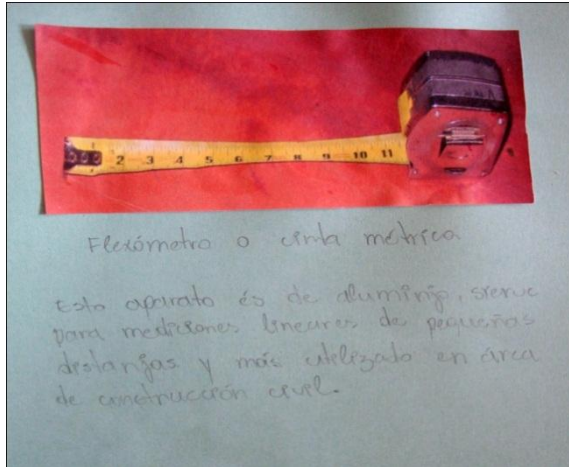 2 3 4 5 6 7 8 9 10 11
Flexómetro o cinta métrica
Esto aparato és de aluminijo, sierve
para mediciones lineares de pequeñas
distanjas y más utelizado en área
de construcción civil.